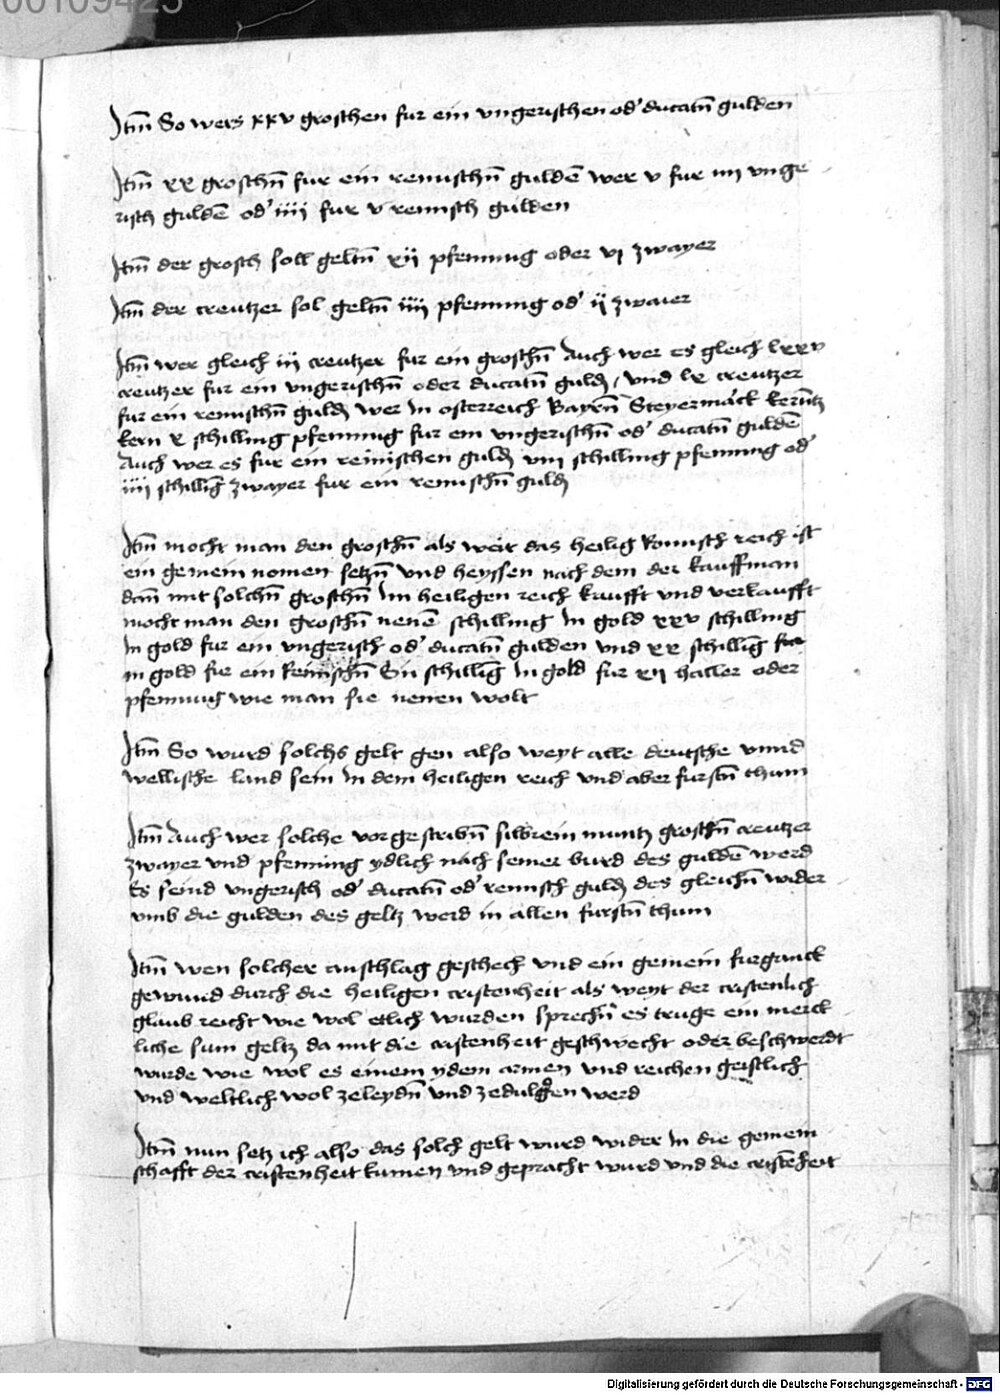 00109425
Itm̄ So wers xxv groschen fur ein vngerischen od' ducatn̄ gulden
Itm̄ xx groschn̄ fur ein reinischn̄ guldē wer v fur iiij vnge
risch guldē od' iiij fur v reinisch gulden
Itm̄ der grosch soll geltn̄ xij pfenning oder vj zwayer
Itm̄ der creutzer sol geltn̄ iiij pfenning od' ij zwaier
Itm̄ wer gleich iij creutzer fur ein groschn̄ Auch wer es gleich lxxv
creutzer fur ein vngerischn̄ oder ducatn̄ guldn̄ / vnd lx creutzer
fur ein reinischn̄ guldn̄ wer In osterreich Bayrn̄ Steyermarck kerntn̄
kern x schilling pfenning fur ein vngerischn̄ od' ducatn̄ guldē
Auch wer es fur ein reinischen guldn̄ viij schilling pfenning od'
iiij schilliḡ zwayer fur ein reinischn̄ guldn̄
Itm̄ mocht man den groschn̄ als weit das heilig Romisch reich ist
ein gemein nomen setzn̄ vnd heyssen nach dem der kauffman
dan̄ mit solchn̄ groschn̄ Im heiligen reich kaufft vnd verkaufft
mocht man den groschn̄ nenē schilling In gold xxv schilling
In gold fur ein vngerisch od' ducatn̄ gulden vnd xx schilliḡ
in gold fur ein Reinischn̄ Ein schilliḡ In gold fur xij haller oder
pfenning wie man sie nenen wolt
Itm̄ So wurd solchs gelt gen also weyt alle deutsche vnnd
wellische land sein In dem heiligen reich vnd aber furstn̄ thum
Itm̄ Auch wer solche vorgescribn̄ silbrein muntz groschn̄ creutzer
zwayer vnd pfenning ydlich nach seiner burd des guldē werd
Es seind vngerisch od' ducatn̄ od' reinisch guldn̄ des gleichn̄ wider
vmb die gulden des geltz werd in allen furstn̄ thum
Itm̄ wen solcher anschlag geschech vnd ein gemein furganck
gewund durch die heiligen cristenheit als weyt der cristenlich
glaub reicht wie wol etlich wurden sprechn̄ es truge ein merck
liche sum geltz da mit die cristenheit geschwecht oder beschwerdt
wurde wie wol es einem ydem armen vnd reichen geistlich
vnd weltlich wol zeleydn̄ vnd zedulgen werd
Itm̄ nun setz ich also das solch gelt wurd wider In die gemein
schafft der cristenheit kumen vnd gepracht wurd vnd die cristēheit
Digitalisierung gefördert durch die Deutsche Forschungsgemeinschaft - DFG